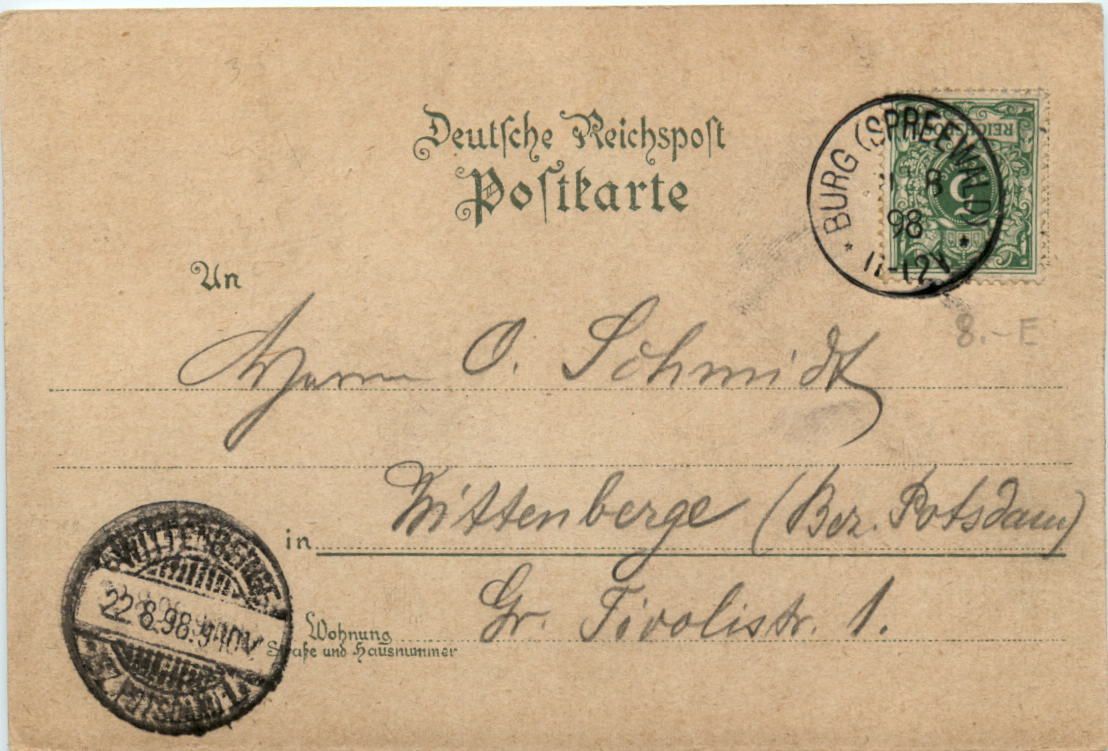 Deutsche Reichspost
Postkarte
BURG (SPREEWALD)
8
98
11-12V
REICHSPOST
5
8.-E
An
Herrn O. Schmidt
in Wittenberge (Bez. Potsdam)
Gr. Tivolistr. 1.
Wohnung
Straße und Hausnummer
WITTENBERGE
22.8.98.9-10V.
BZ. POTSDAM